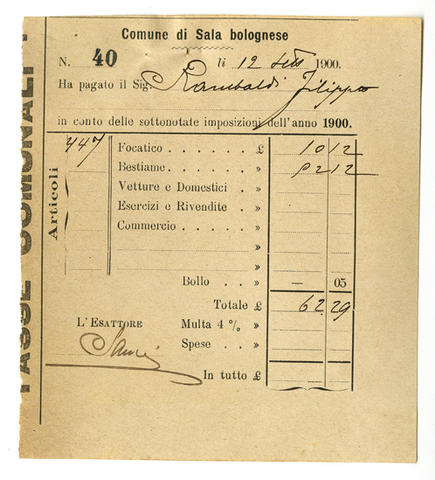 Comune di Sala bolognese
N. 40 li 12 Sett 1900.
Ha pagato il Sig. Rambaldi Filippo
in conto delle sottonotate imposizioni dell'anno 1900.
TASSE COMUNALI
Articoli
447 Focatico . . . . . . . £ 10 12
Bestiame . . . . . . . » 52 12
Vetture e Domestici . »
Esercizi e Rivendite . »
Commercio . . . . . . »
»
»
Bollo . . » — 05
Totale £ 62.29
L'ESATTORE Multa 4 % . »
Spese . . »
In tutto £